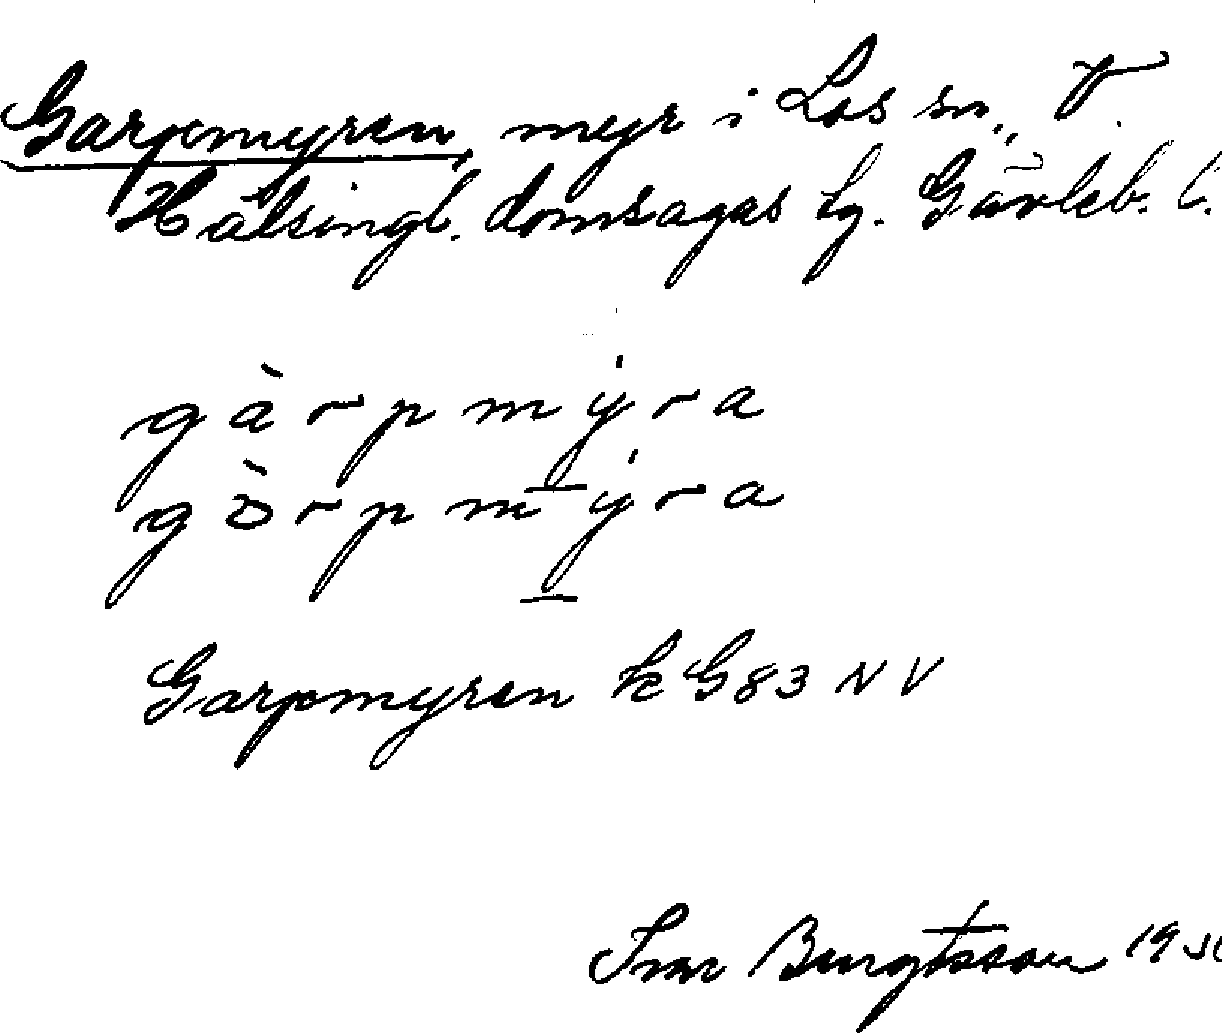 Garpmyren, myr i Los sn, V.
Hälsingl. domsagas tg. Gävleb. l.
gàrpmẏra
gòrpmẏra
Garpmyren k G83 NV
Ivar Bengtsson